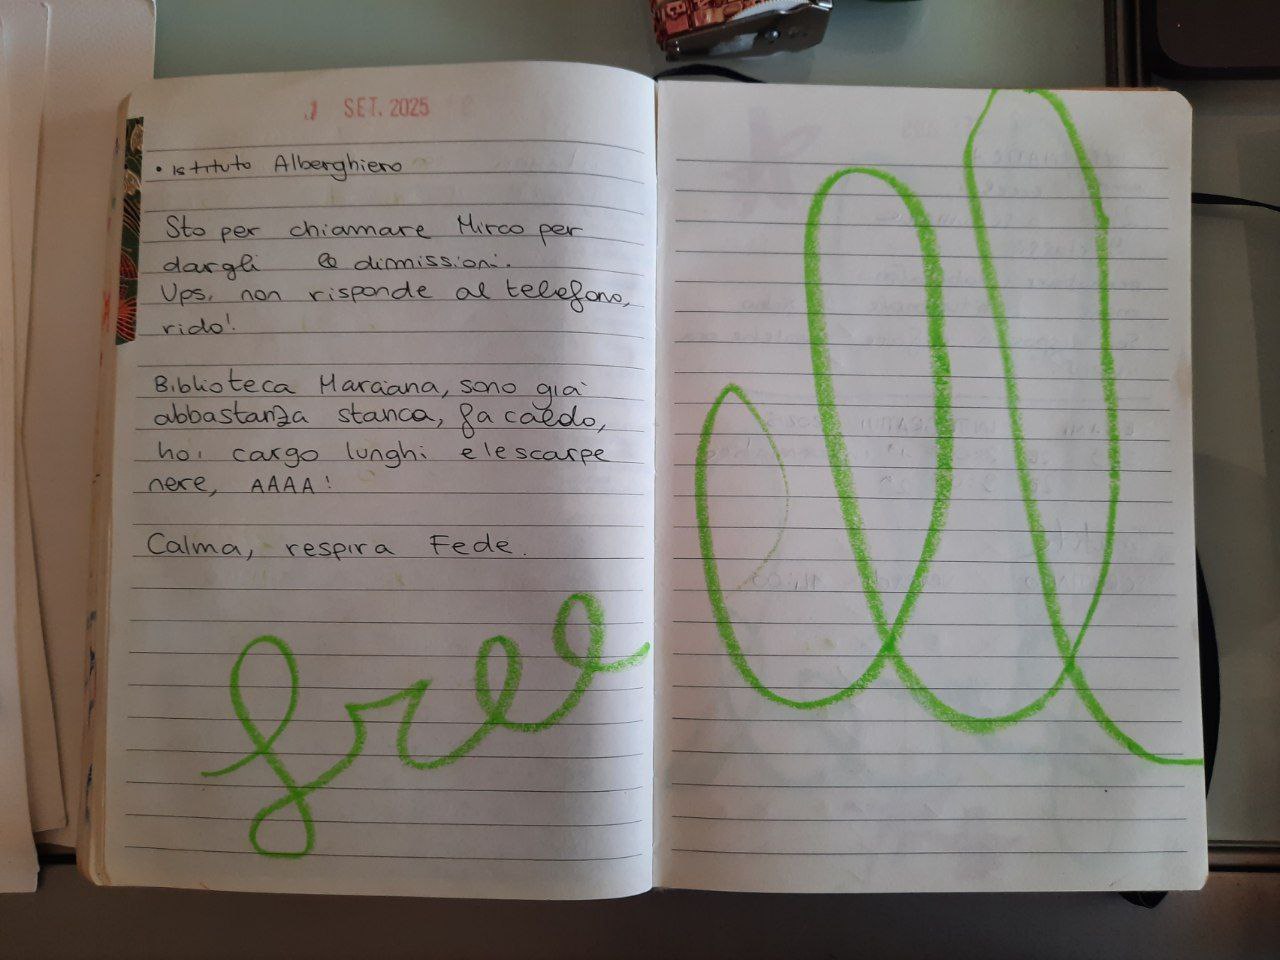 1 SET. 2025
• Istituto Alberghiero
Sto per chiamare Mirco per
dargli le dimissioni.
Ups, non risponde al telefono,
rido!
Biblioteca Marciana, sono già
abbastanza stanca, fa caldo,
ho i cargo lunghi e le scarpe
nere, AAAA!
Calma, respira Fede.
free